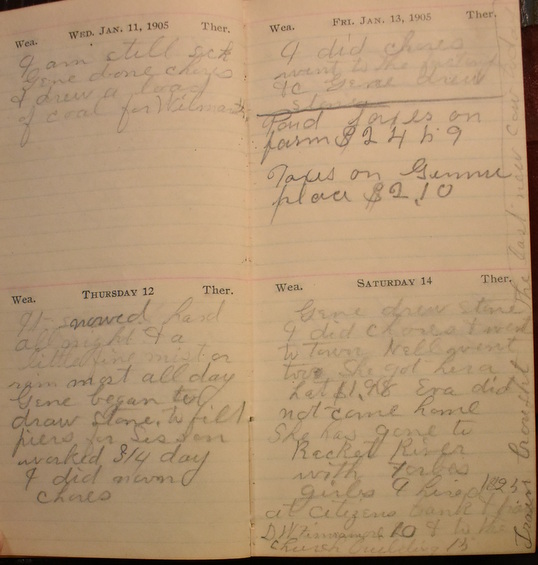 Wea. WED. JAN. 11, 1905 Ther.
I am still sick
Gene done chores
& drew a load
of coal for
Wea. THURSDAY 12 Ther.
It snowed hard
all night & a
little fine mist or
rain most all day
Gene began to
draw stone to fill
piers for Sisson
worked 3/4 day
I did morn
chores
Wea. FRI. JAN. 13, 1905 Ther.
I did chores
went to the
& Gene drew
stone
Paid taxes on
farm $24 59
Taxes on
place $2.10
Wea. SATURDAY 14 Ther.
Gene drew stone
I did chores & went
to town Nell went
too She got her a
hat $1.98 Eva did
not come home
She has gone to
Racket River
with Forbes
girls I hired
at Citizens Bank
D.W. Finnimore 60 & to the
church building 15
brought the last new cow